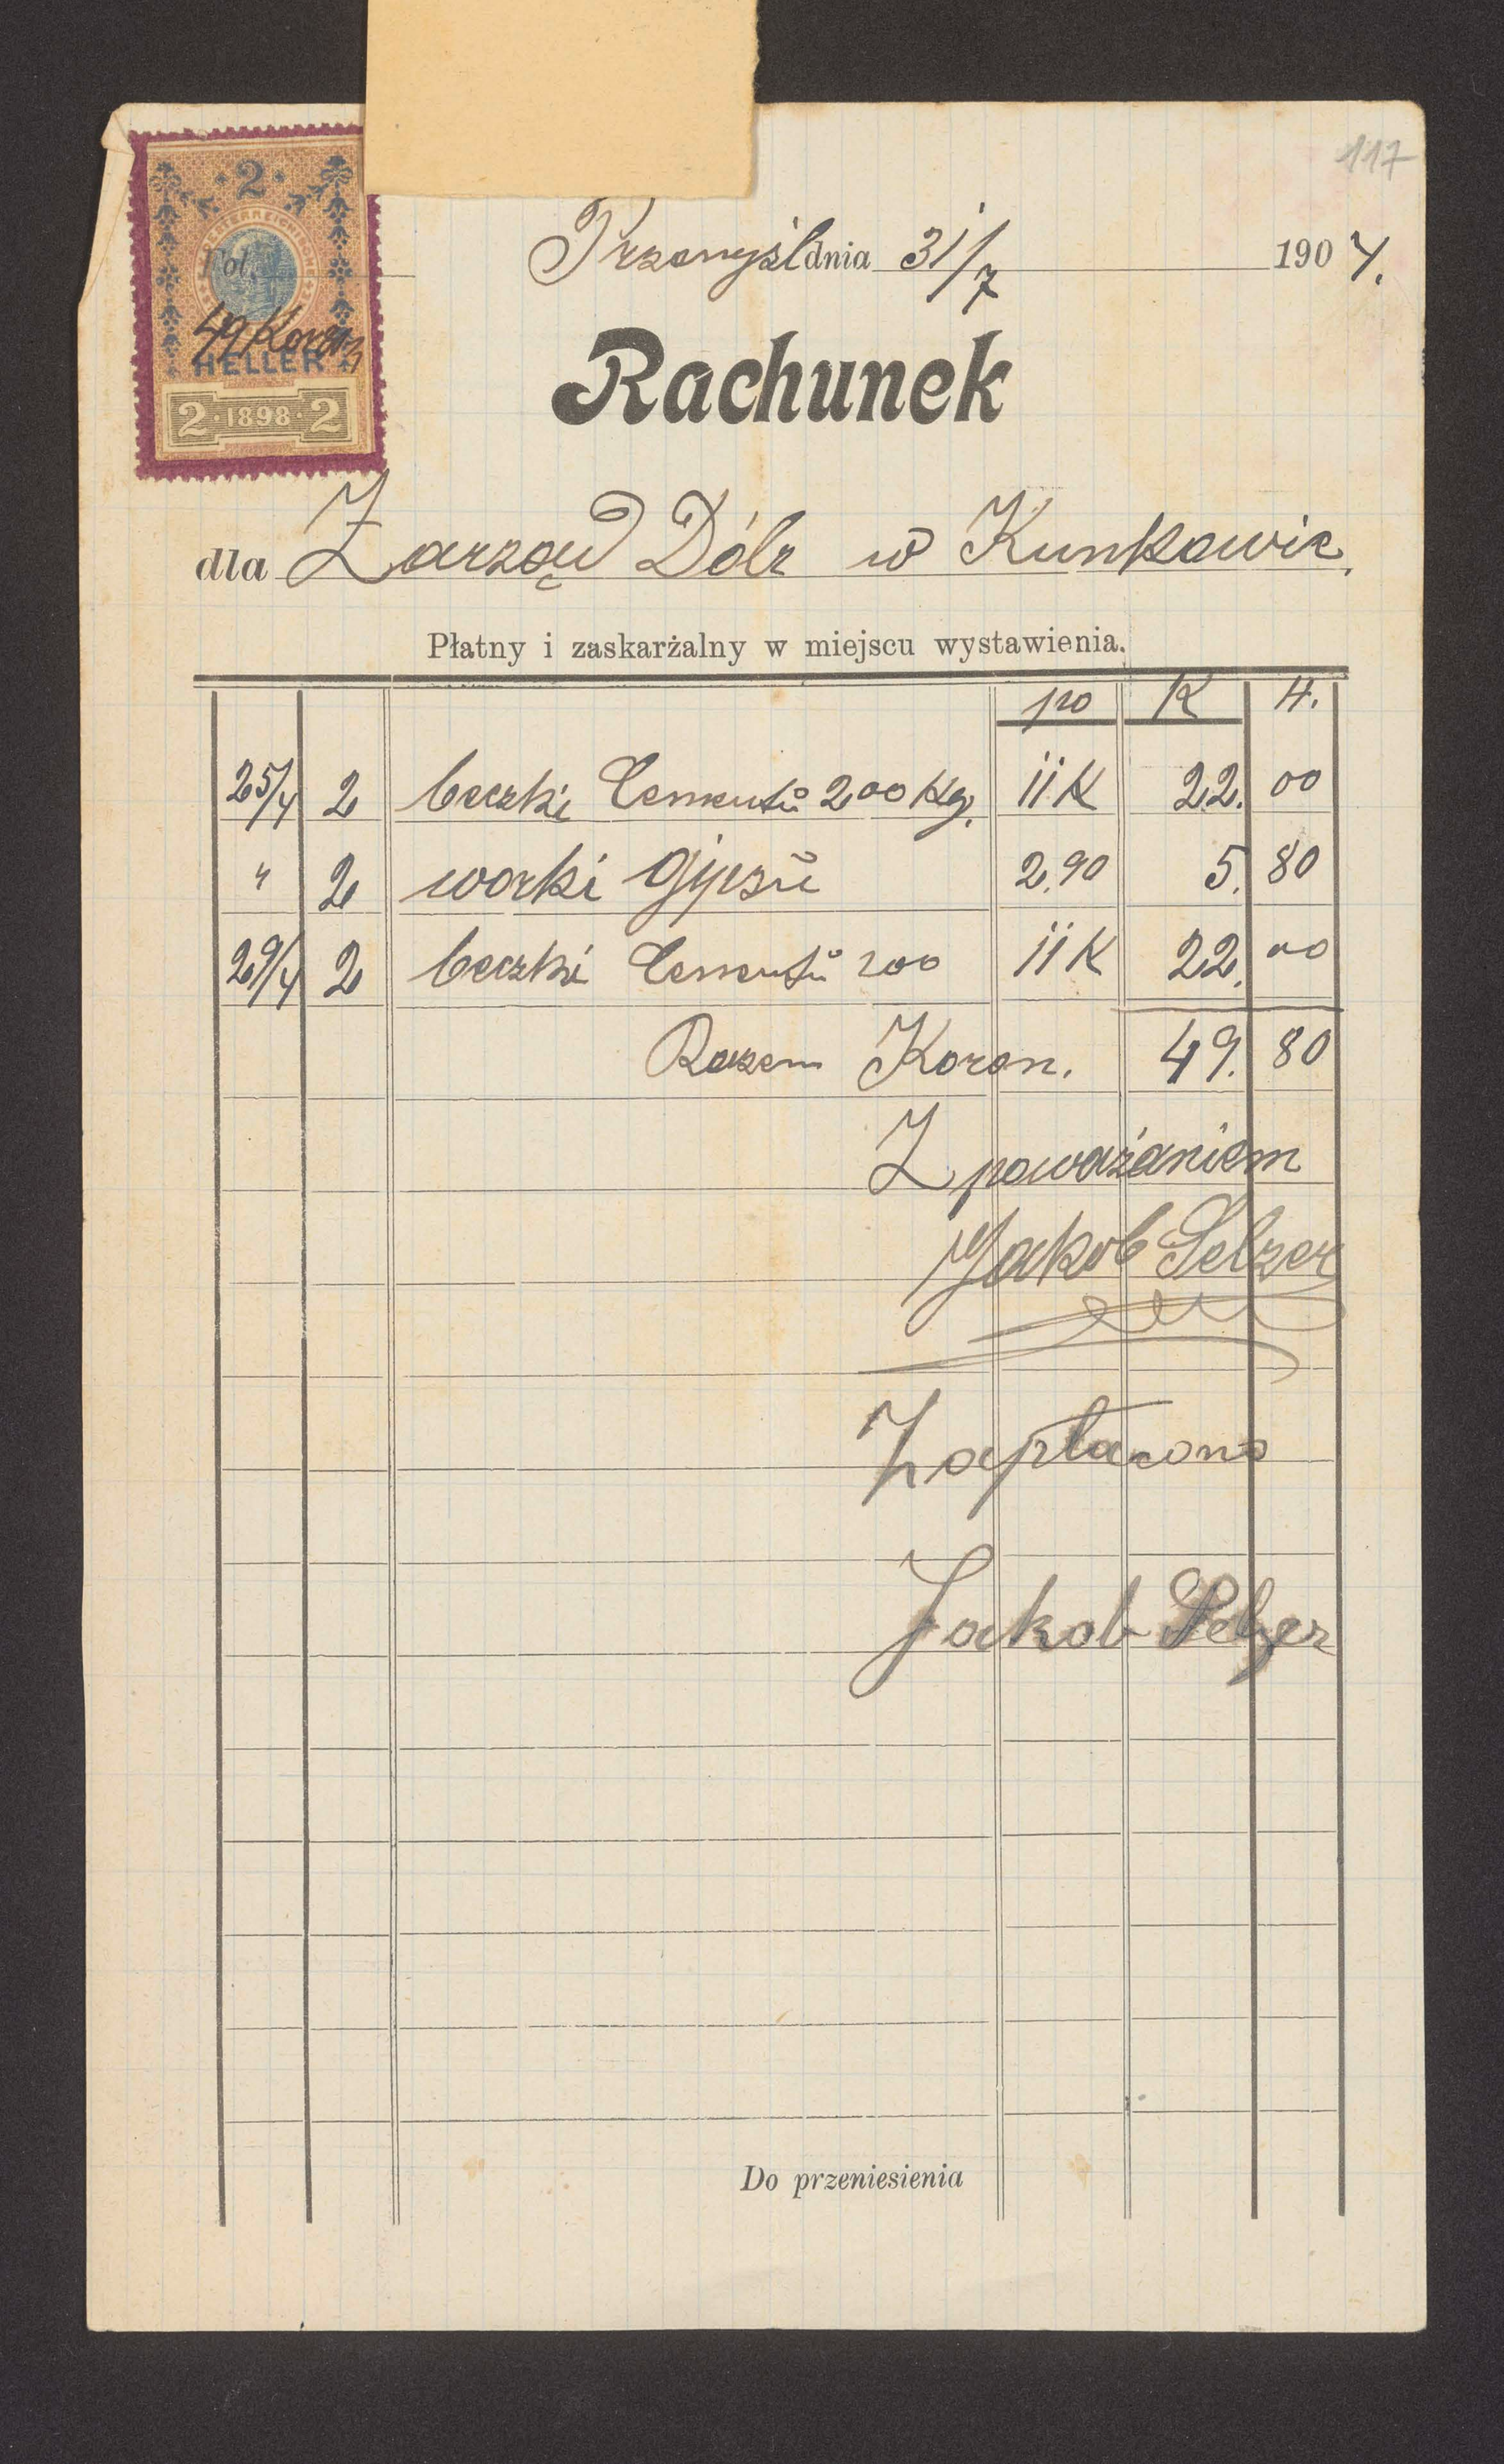 117
2
ÖSTERREICHISCHE
Fol.
49 Koron
HELLER
2 · 1898 · 2
Przemyśl dnia 31/7 1904.
Rachunek
dla Zarząd Dóbr w Kunkowic.
Płatny i zaskarżalny w miejscu wystawienia.
po K H.
25/4 2 beczki Cementu 200 Kg. 11K 22. 00
" 2 worki gipsu 2.90 5. 80
29/4 2 beczki Cementu 200 11K 22. 00
Razem Koron. 49. 80
Z poważaniem
Jakob Selzer
Zapłacono
Jakob Selzer
Do przeniesienia